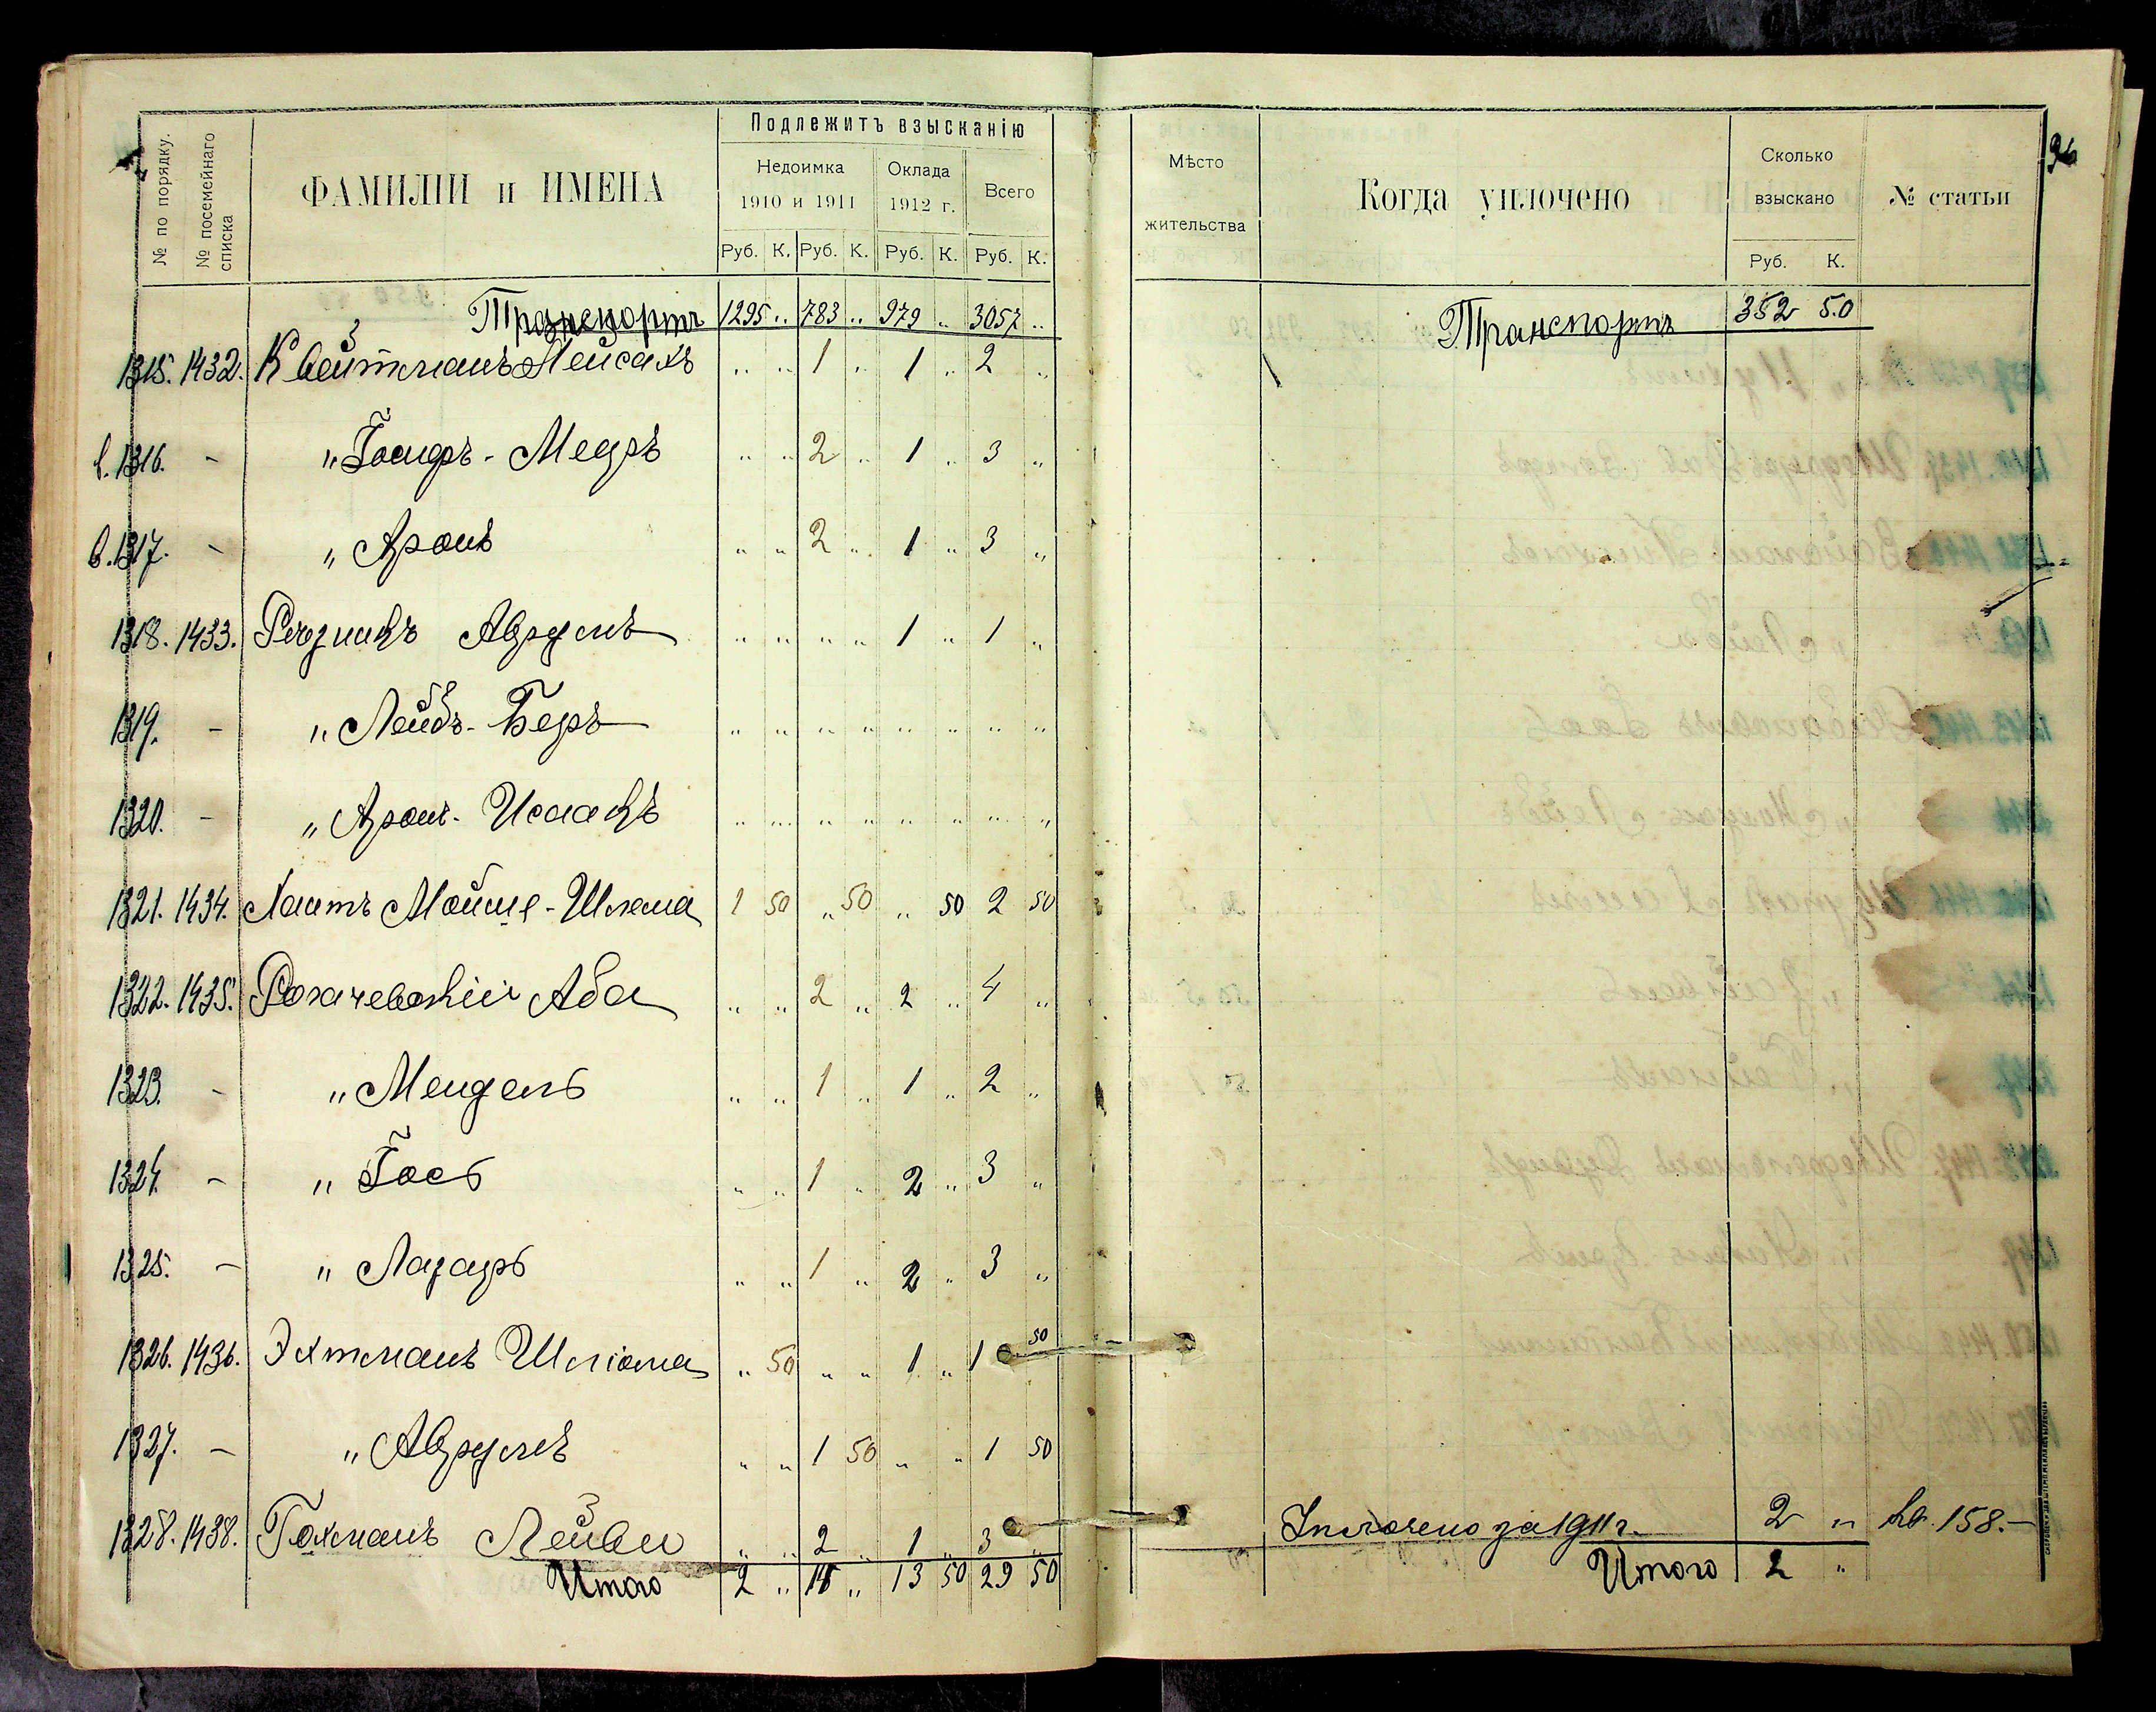 № по порядку.
№ посемейнаго списка
ФАМИЛІИ и ИМЕНА
Подлежитъ взысканію
Недоимка 1910 и 1911
Оклада 1912 г.
Всего
Руб. К. Руб. К. Руб. К. Руб. К.
Транспортъ 1295 „ 783 „ 979 „ 3057 „
1315. 1432. Квейтманъ Пейсахъ „ „ 1 „ 1 „ 2 „
в. 1316. - „ Іосифъ-Мееръ „ „ 2 „ 1 „ 3 „
в. 1317. - „ Аронъ „ „ 2 „ 1 „ 3 „
1318. 1433. Рѣзникъ Аврумъ „ „ „ „ 1 „ 1 „
1319. - „ Лейбъ-Беръ „ „ „ „ „ „ „ „
1320. - „ Аронъ-Исаакъ „ „ „ „ „ „ „ „
1321. 1434. Хаитъ Мойше-Шлема 1 50 „ 50 „ 50 2 50
1322. 1435. Рогачевскій Аба „ „ 2 „ 2 „ 4 „
1323. - „ Мендель „ „ 1 „ 1 „ 2 „
1324. - „ Іось „ „ 1 „ 2 „ 3 „
1325. - „ Лазарь „ „ 1 „ 2 „ 3 „
1326. 1436. Эхтманъ Шліома „ 50 „ „ 1 „ 1 50
1327. - „ Аврумъ „ „ 1 50 „ „ 1 50
1328. 1438. Гохманъ Лейви „ „ 2 „ 1 „ 3 „
Итого 2 „ 14 „ 13 50 29 50
96
Мѣсто жительства
Когда уплочено
Сколько взыскано
Руб. К.
№ статьи
Транспортъ 352 50
Уплочено за 1911 г. 2 „ кв. 158.-
Итого 2 „